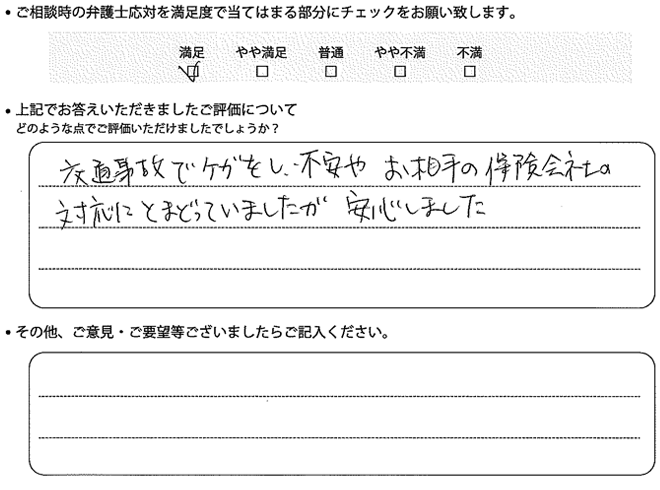 • ご相談時の弁護士応対を満足度で当てはまる部分にチェックをお願い致します。
満足 やや満足 普通 やや不満 不満
• 上記でお答えいただきましたご評価について
どのような点でご評価いただけましたでしょうか？
交通事故でケガをし、不安や お相手の保険会社の
対応にとまどっていましたが 安心しました
• その他、ご意見・ご要望等ございましたらご記入ください。